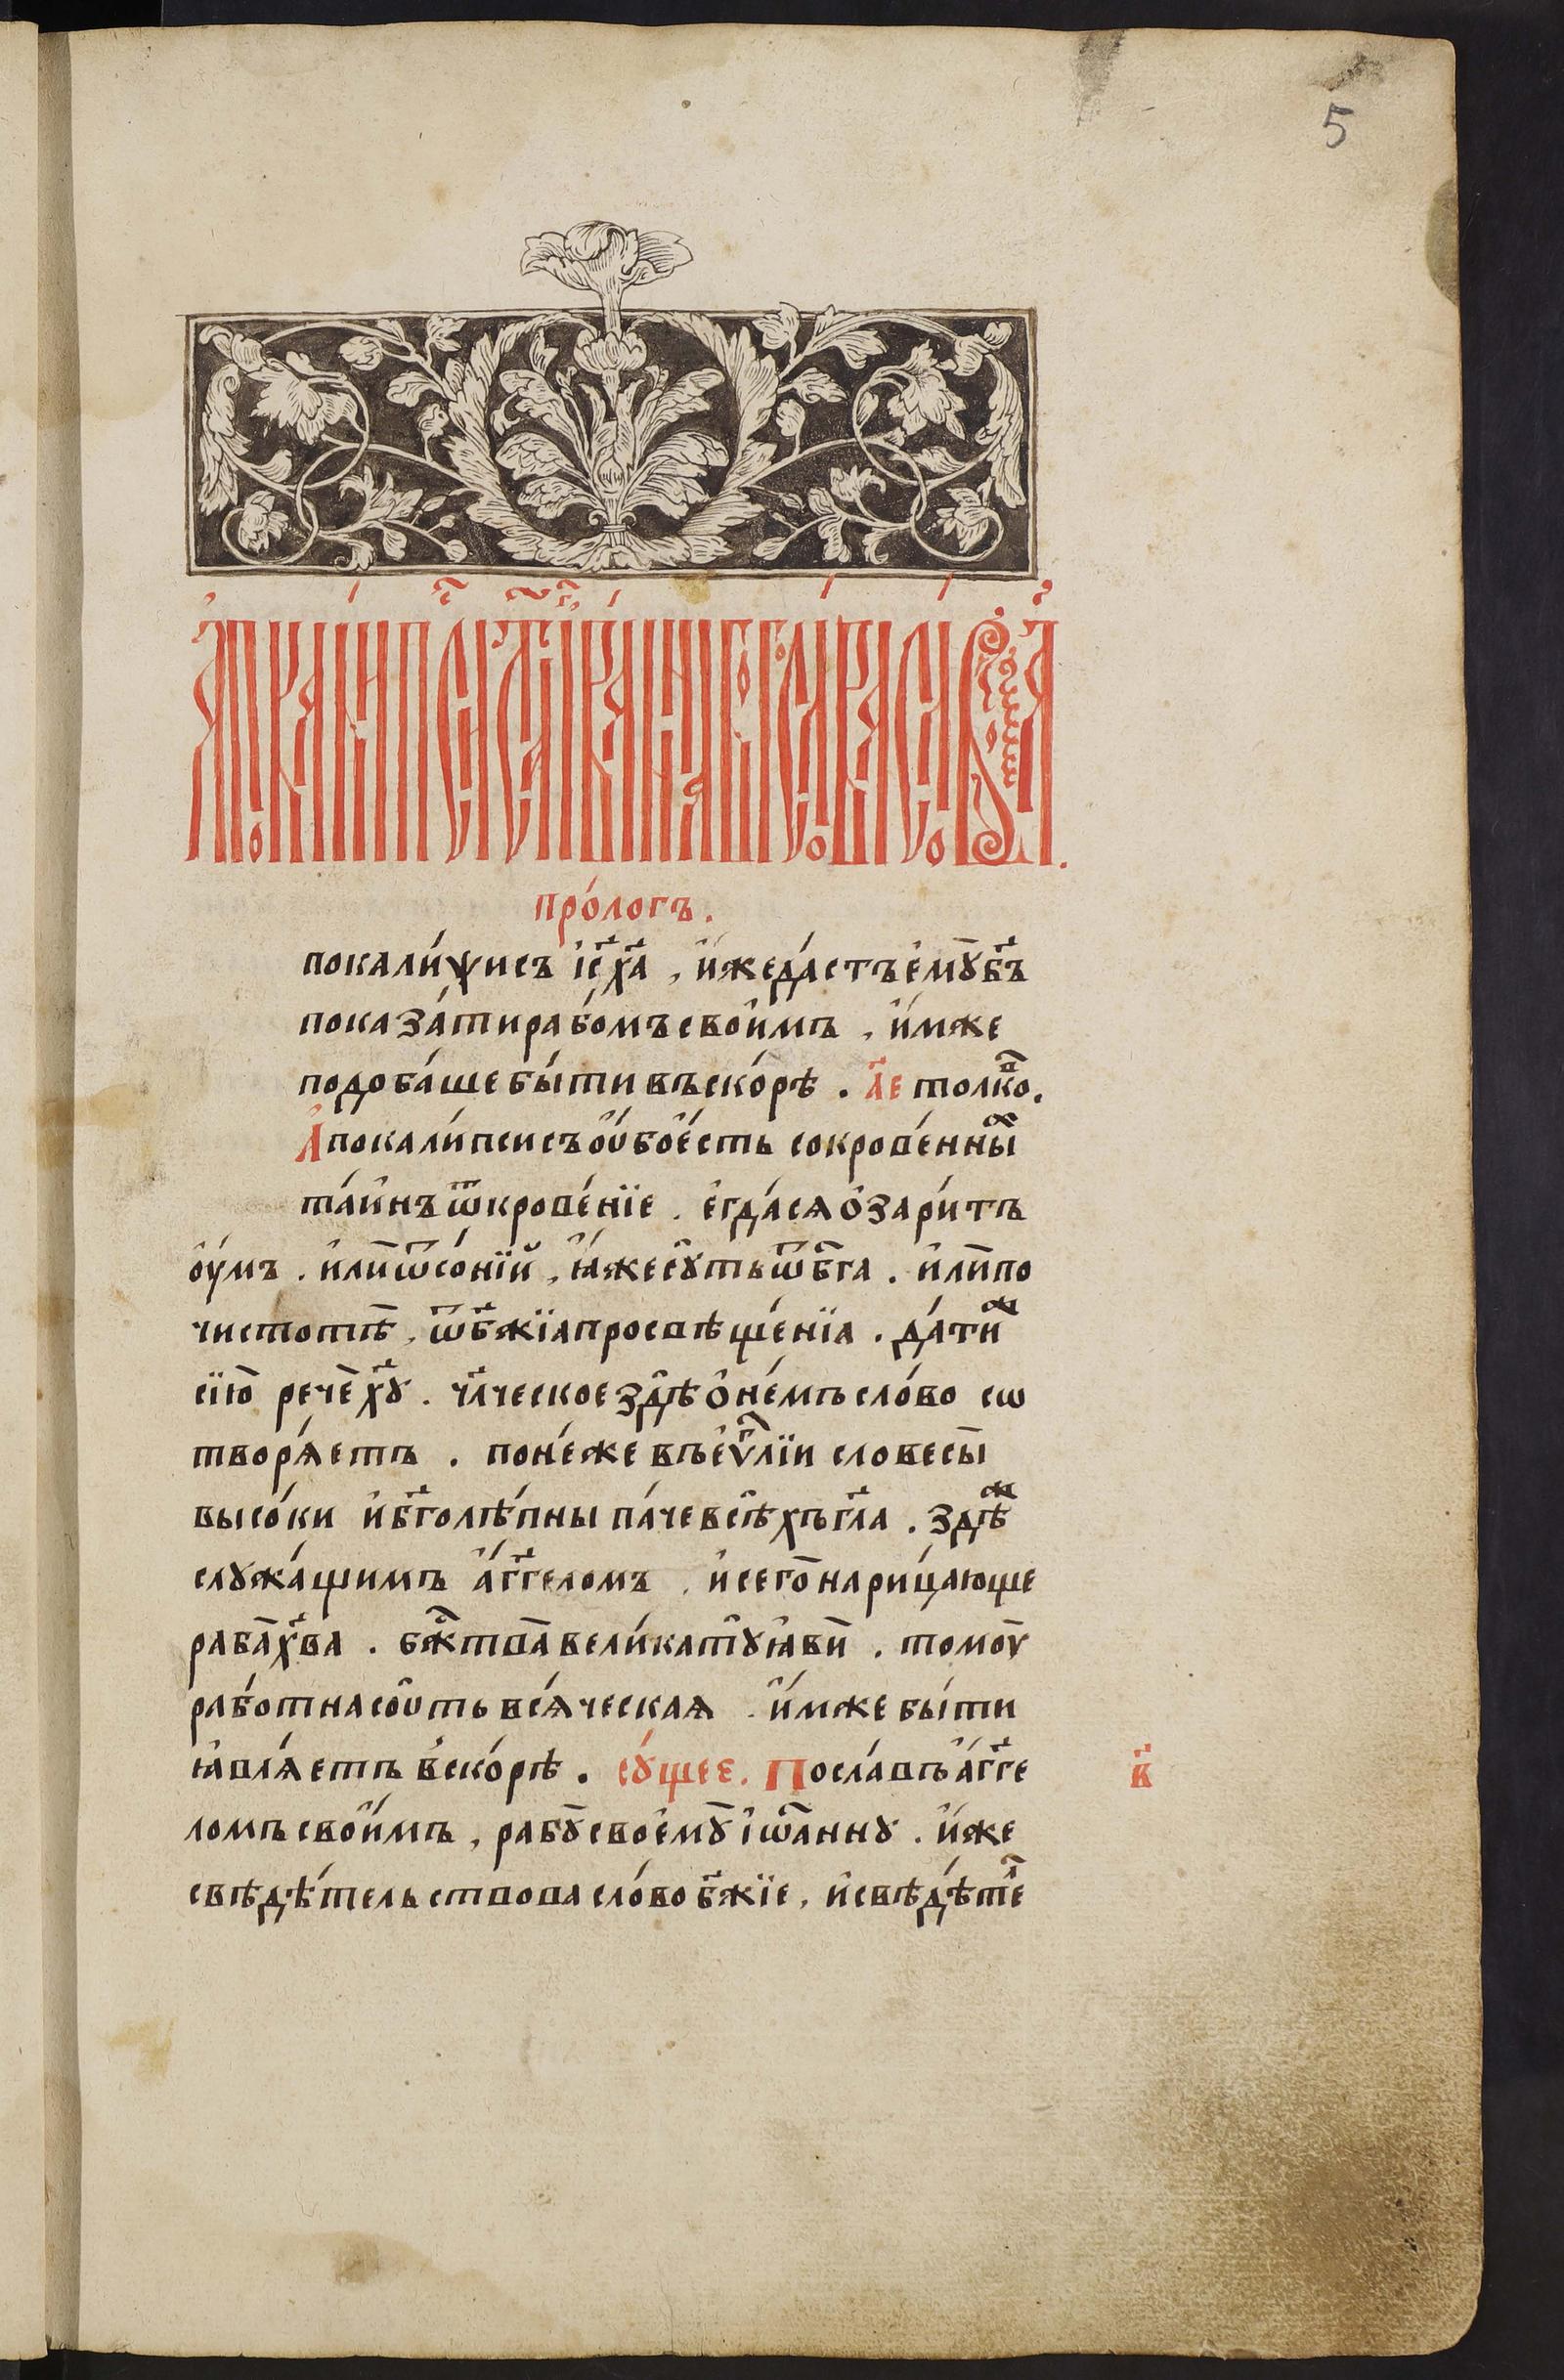 5
про́логъ.
покали́ѱисъ і҆с҃ х҃а, и҆́же да́стъ є҆мꙋ̀ бг҃ъ
показа́ти рабо́мъ свои҆́мъ, и҆́мже
подоба́ше бы́ти въ ско́рѣ. а҃ е толко.
А҆покали́псисъ ᲂу҆́бо є҆́сть сокрове́нны
та́инъ ѿкрове́нїе. є҆гда́ сѧ ѻ҆зари́тъ
ᲂу҆́мъ. и҆лѝ ѿ со́нїй, ꙗ҆́же сꙋ́ть ѿ бг҃а. и҆лѝ по
чистотѣ̀, ѿ бж҃їа просвѣще́нїа. да́ти ж
сїю̀ речѐ хⷭ҇ꙋ. чл҃ческое здѣ̀ ѻ҆ не́мъ сло́во сѡ
творѧ́етъ. поне́же въ є҆ѵⷢ҇лїи словесы̀
высо́ки и҆ бг҃олѣ́пны па́че всѣ́хъ гл҃а. здѣ́ ж
слꙋжа́щимъ а҆́гг҃еломъ, и҆ сего̀ нарица́юще
раба̀ хв҃а. бж҃тва̀ вели́каѧ тꙋ̀ ꙗ҆вѝ. томоу̀
рабо́тна соу́ть всѧ́ческаѧ. и҆́мже бы́ти
ꙗ҆влѧ́етъ вско́рѣ. сꙋ́щее. Посла́въ а҆́гг҃е
в҃
ломъ свои҆́мъ, рабꙋ̀ своемꙋ̀ і҆ѡа́ннꙋ. и҆́же
свѣдѣ́тельствова сло́во бж҃їе, и҆ свѣдѣ́те